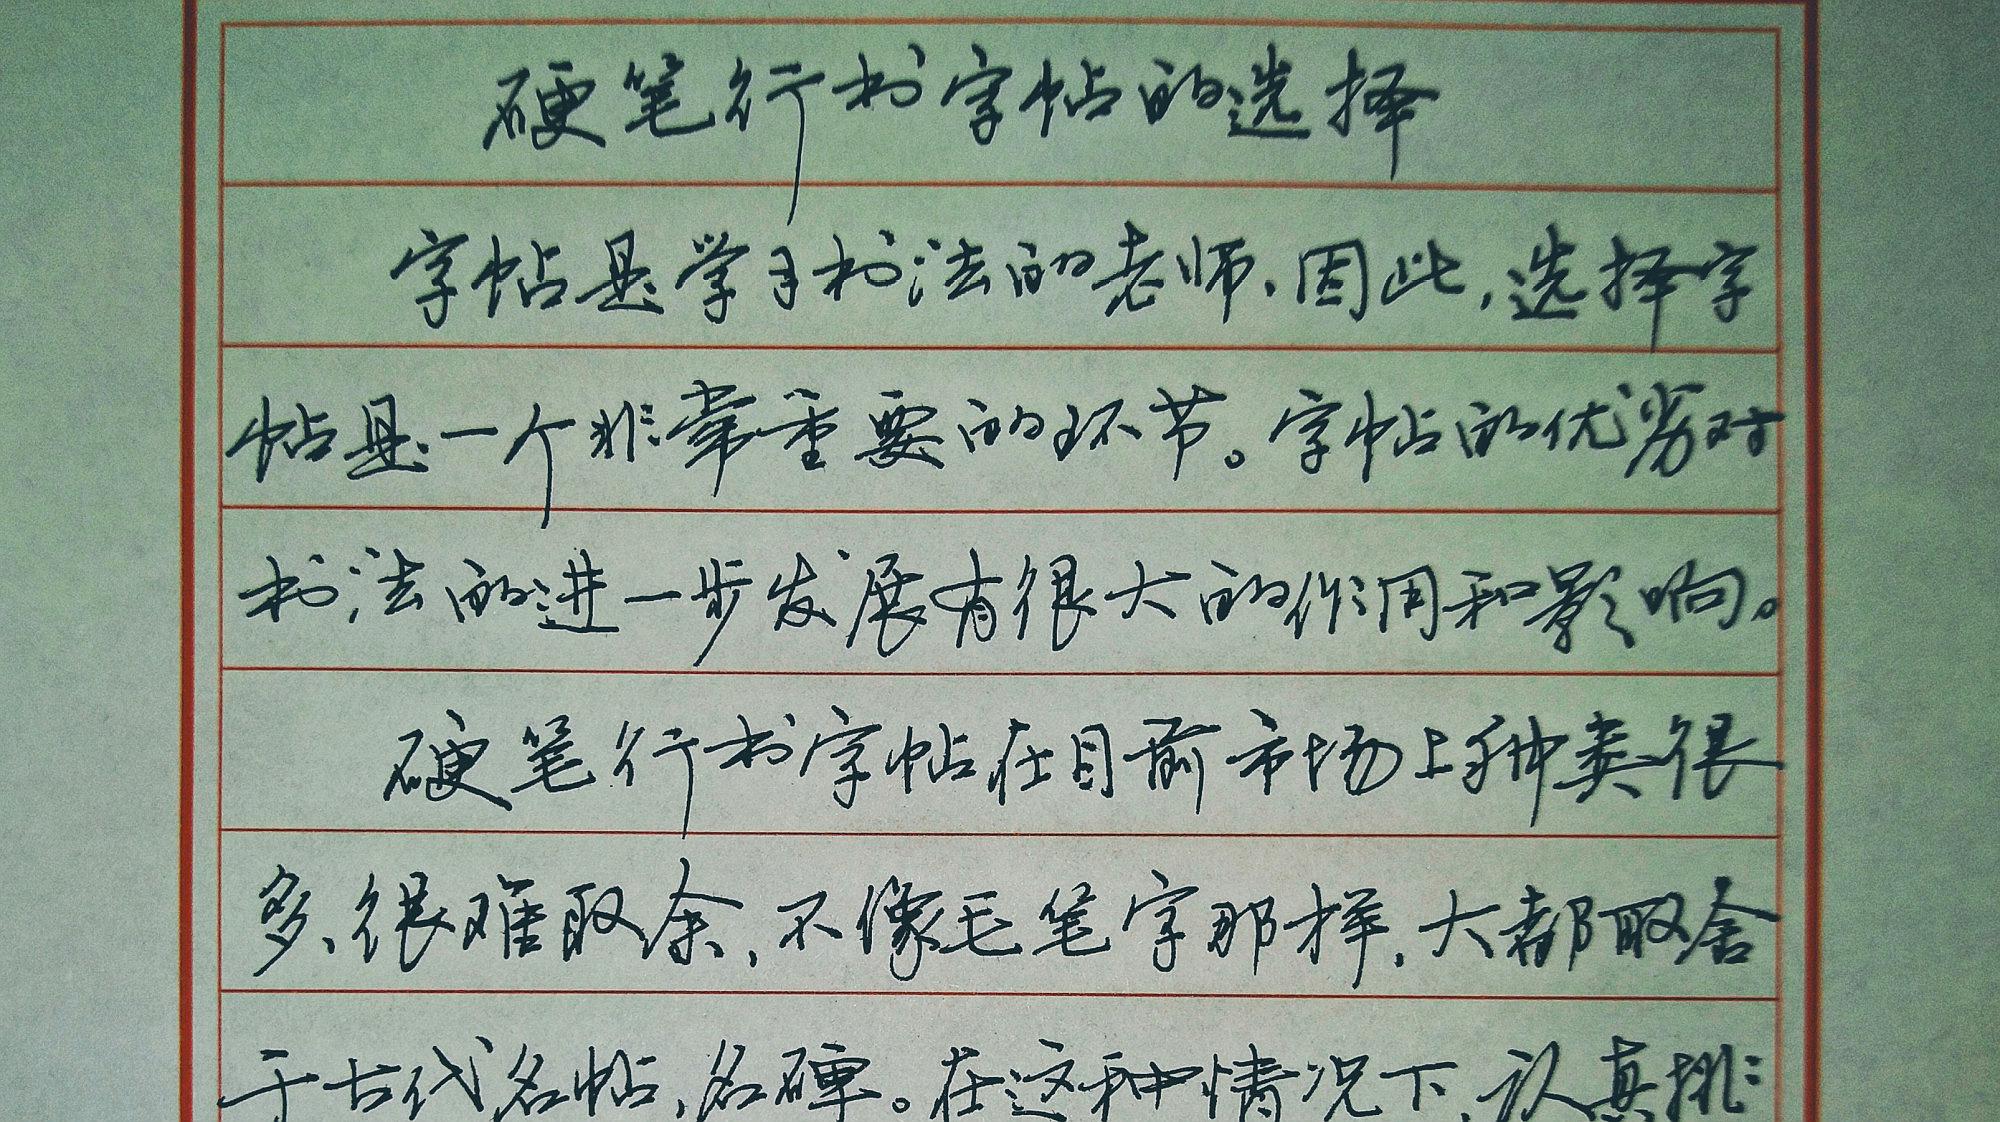 硬笔行书字帖的选择
字帖是学习书法的老师,因此,选择字
帖是一个非常重要的环节。字帖的优劣对
书法的进一步发展有很大的作用和影响。
硬笔行书字帖在目前市场上种类很
多,很难取余,不像毛笔字那样,大都取舍
于古代名帖,名碑。在这种情况下,认真挑